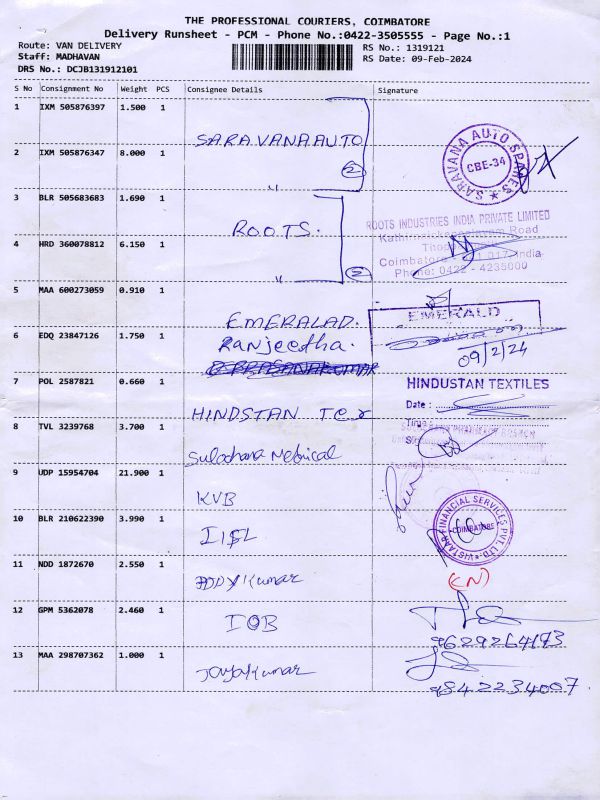 THE PROFESSIONAL COURIERS, COIMBATORE
Delivery Runsheet - PCM - Phone No.:0422-3505555 - Page No.:1
Route: VAN DELIVERY
RS No.: 1319121
Staff: MADHAVAN
RS Date: 09-Feb-2024
DRS No.: DCJB131912101
S No Consignment No Weight PCS Consignee Details Signature
1 IXM 505876397 1.500 1
SARAVANA AUTO
SARAVANA AUTO SPARES
CBE-34
2 IXM 505876347 8.000 1
2
3 BLR 505683683 1.690 1
ROOTS.
ROOTS INDUSTRIES INDIA PRIVATE LIMITED
Road
4 HRD 360078812 6.150 1
Coimbatore - India
Phone: 0422 - 4235000
2
5 MAA 600273059 0.910 1
EMERALAD.
EMERALD
6 EDQ 23847126 1.750 1
Ranjeetha.
09/2/24
7 POL 2587821 0.660 1
HINDUSTAN TEXTILES
Date :
HINDSTAN Tex
Time
8 TVL 3239768 3.700 1
Sulochana
9 UDP 15954704 21.900 1
KVB
VISTAAR FINANCIAL SERVICES PVT. LTD
COIMBATORE
10 BLR 210622390 3.990 1
11 NDD 1872670 2.550 1
12 GPM 5362078 2.460 1
IOB
9629264193
13 MAA 298707362 1.000 1
Jayakumar
9842234007